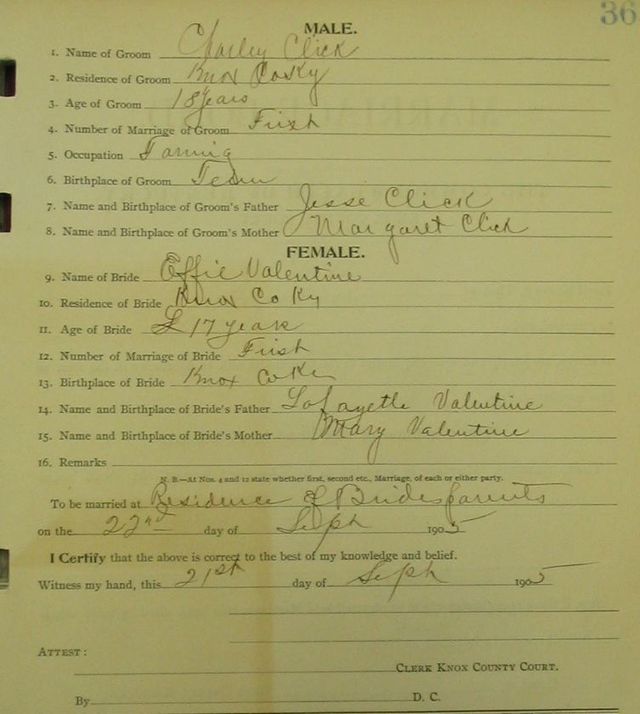 36
MALE.
1. Name of Groom Charley Click
2. Residence of Groom Knox Co Ky
3. Age of Groom 18 years
4. Number of Marriage of Groom First
5. Occupation Farming
6. Birthplace of Groom Tenn
7. Name and Birthplace of Groom's Father Jesse Click
8. Name and Birthplace of Groom's Mother Margaret Click
FEMALE.
9. Name of Bride Effie Valentine
10. Residence of Bride Knox Co Ky
11. Age of Bride 17 years
12. Number of Marriage of Bride First
13. Birthplace of Bride Knox Co Ky
14. Name and Birthplace of Bride's Father Lafayette Valentine
15. Name and Birthplace of Bride's Mother Mary Valentine
16. Remarks
N. B.—At Nos. 4 and 12 state whether first, second etc., Marriage, of each or either party.
To be married at Residence of Brides parents
on the 22nd day of Seph 1905
I Certify that the above is correct to the best of my knowledge and belief.
Witness my hand, this 21st day of Seph 1905
ATTEST:
CLERK KNOX COUNTY COURT.
By D. C.